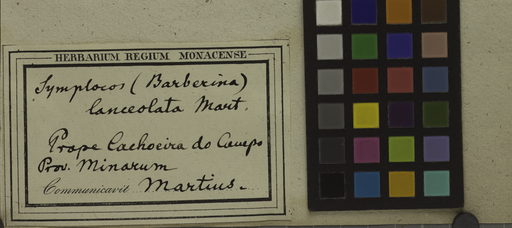 HERBARIUM REGIUM MONACENSE
Symplocos (Barberina)
lanceolata Mart.
Prope Cachoeira do Campo
Prov. Minarum
Communicavit Martius.